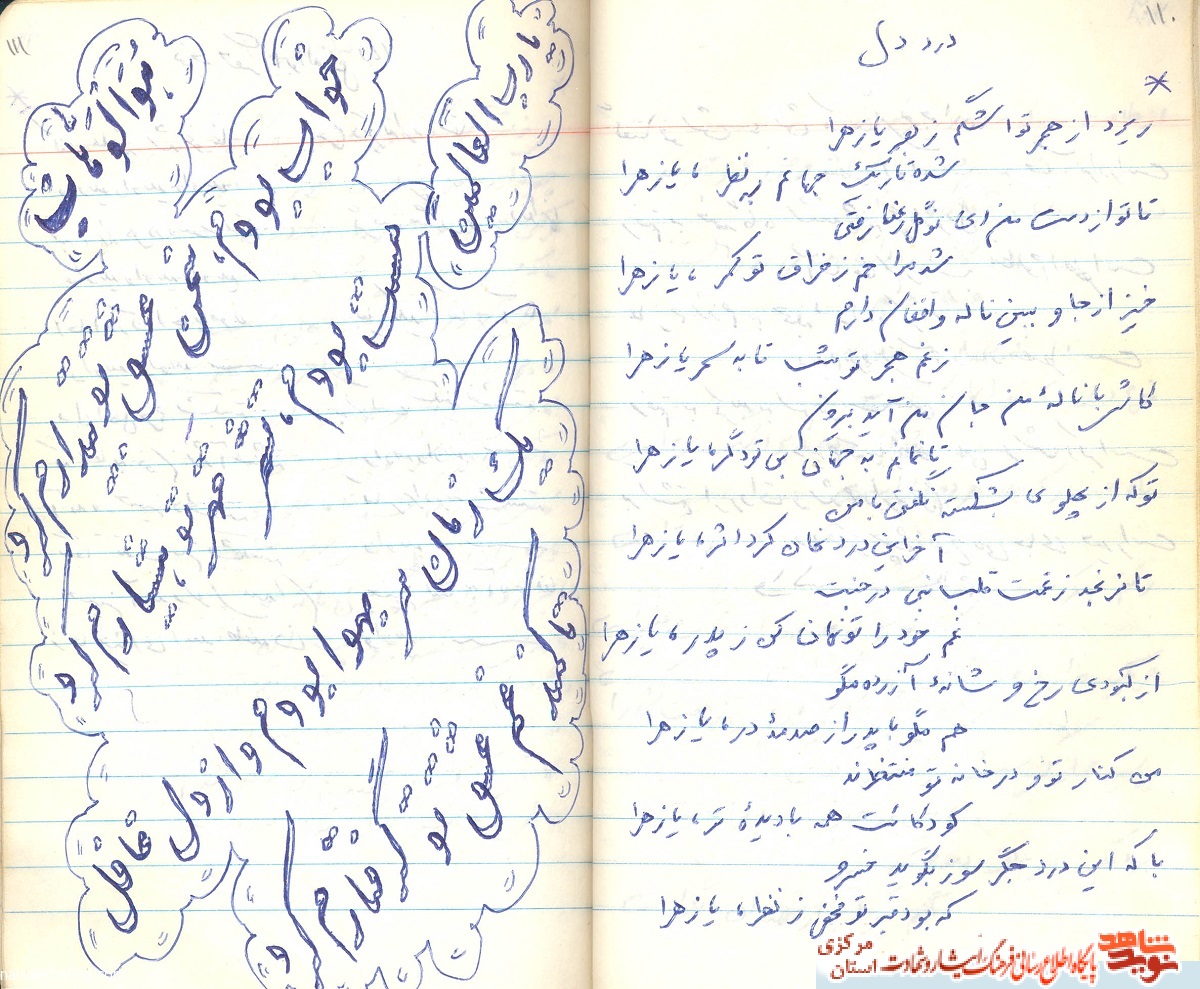 ۱۱۰
درد دل
*
ریزد از هجر تو اشکم ز بصر یا زهرا
شده تاریک جهانم به نظر، یا زهرا
تا تو از دست من ای نوگل رعنا رفتی
شد مرا خم ز فراق تو کمر، یا زهرا
خیز از جا و ببین ناله و افغان دارم
ز غم هجر تو شب تا به سحر یا زهرا
کاش با نالهٔ من جان من آید بیرون
تا نمانم به جهان بی تو دگر، یا زهرا
تو که از پهلوی بشکسته نگفتی با من
آخر این درد نهان کرد اثر، یا زهرا
تا نرنجد ز غمت قلب نبی در جنت
غم خود را تو نهان کن ز پدر، یا زهرا
از کبودی رخ و شانهٔ آزرده مگو
هم مگو با پدر از صدمهٔ در، یا زهرا
من کنار تو و در خانه تو منتظرند
کودکانت همه با دیدهٔ تر، یا زهرا
با که این درد جگر سوز بگوید خسرو
که بود قبر تو مخفی ز نظر، یا زهرا
۱۱۱
یا رب العالمین
هو التواب
خواب بودم، عشق تو بیدارم کرد
مست بودم، قهر تو هشیارم کرد
یک زمان سر بهوا بودم و از دل غافل
تا که غم عشق تو گرفتارم کرد
نوید شاهد
پایگاه اطلاع رسانی فرهنگ ایثار و شهادت
استان مرکزی